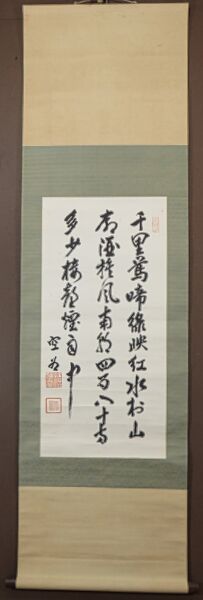 千里鶯啼緑映紅水村山
郭酒旗風南朝四百八十寺
多少楼台煙雨中